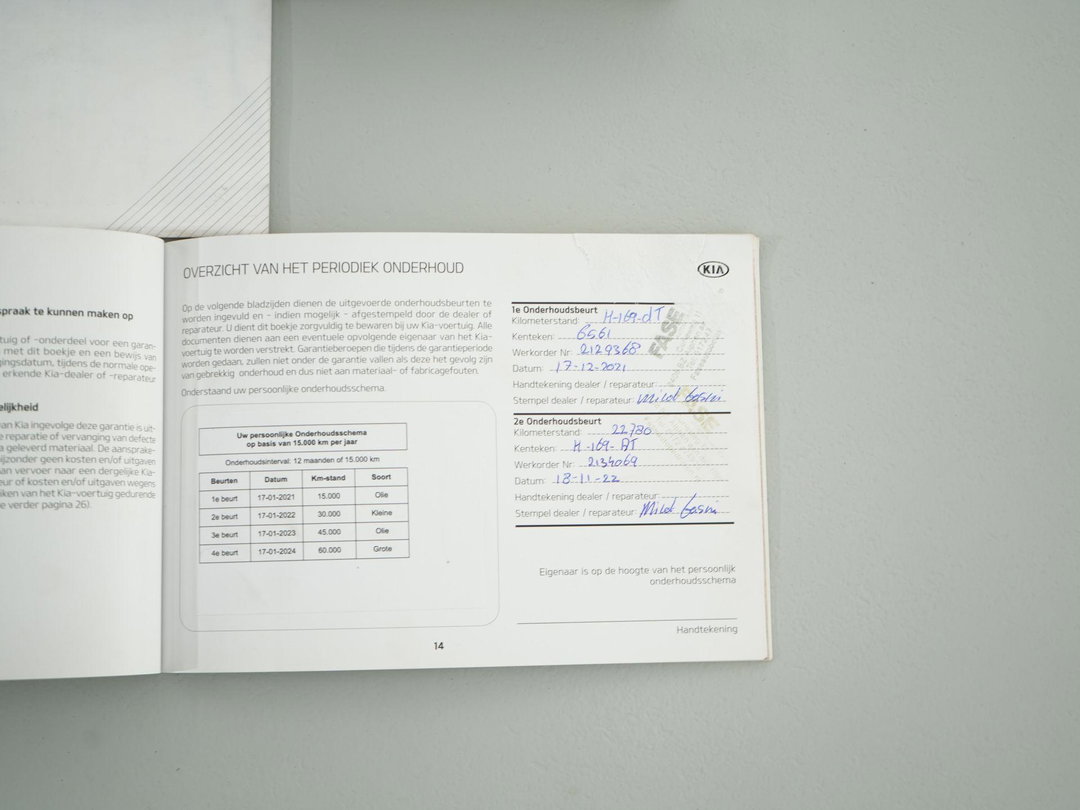 spraak te kunnen maken op
tuig of -onderdeel voor een garan-
met dit boekje en een bewijs van
gingsdatum, tijdens de normale ope-
erkende Kia-dealer of -reparateur
elijkheid
van Kia ingevolge deze garantie is uit-
e reparatie of vervanging van defecte
a geleverd materiaal. De aansprake-
ijzonder geen kosten en/of uitgaven
an vervoer naar een dergelijke Kia-
eur of kosten en/of uitgaven wegens
iken van het Kia-voertuig gedurende
e verder pagina 26).
OVERZICHT VAN HET PERIODIEK ONDERHOUD
Op de volgende bladzijden dienen de uitgevoerde onderhoudsbeurten te
worden ingevuld en - indien mogelijk - afgestempeld door de dealer of
reparateur. U dient dit boekje zorgvuldig te bewaren bij uw Kia-voertuig. Alle
documenten dienen aan een eventuele opvolgende eigenaar van het Kia-
voertuig te worden verstrekt. Garantieberoepen die tijdens de garantieperiode
worden gedaan, zullen niet onder de garantie vallen als deze het gevolg zijn
van gebrekkig onderhoud en dus niet aan materiaal- of fabricagefouten.
Onderstaand uw persoonlijke onderhoudsschema.
Uw persoonlijke Onderhoudsschema
op basis van 15.000 km per jaar
Onderhoudsinterval: 12 maanden of 15.000 km
Beurten Datum Km-stand Soort
1e beurt 17-01-2021 15.000 Olie
2e beurt 17-01-2022 30.000 Kleine
3e beurt 17-01-2023 45.000 Olie
4e beurt 17-01-2024 60.000 Grote
14
KIA
1e Onderhoudsbeurt
Kilometerstand: H-169-dT
Kenteken: 6561
Werkorder Nr: 2129368
Datum: 17-12-2021
Handtekening dealer / reparateur:
Stempel dealer / reparateur:
FASE
2e Onderhoudsbeurt
Kilometerstand: 22780
Kenteken: H-169-AT
Werkorder Nr: 2134069
Datum: 18-11-22
Handtekening dealer / reparateur:
Stempel dealer / reparateur:
Eigenaar is op de hoogte van het persoonlijk
onderhoudsschema
Handtekening